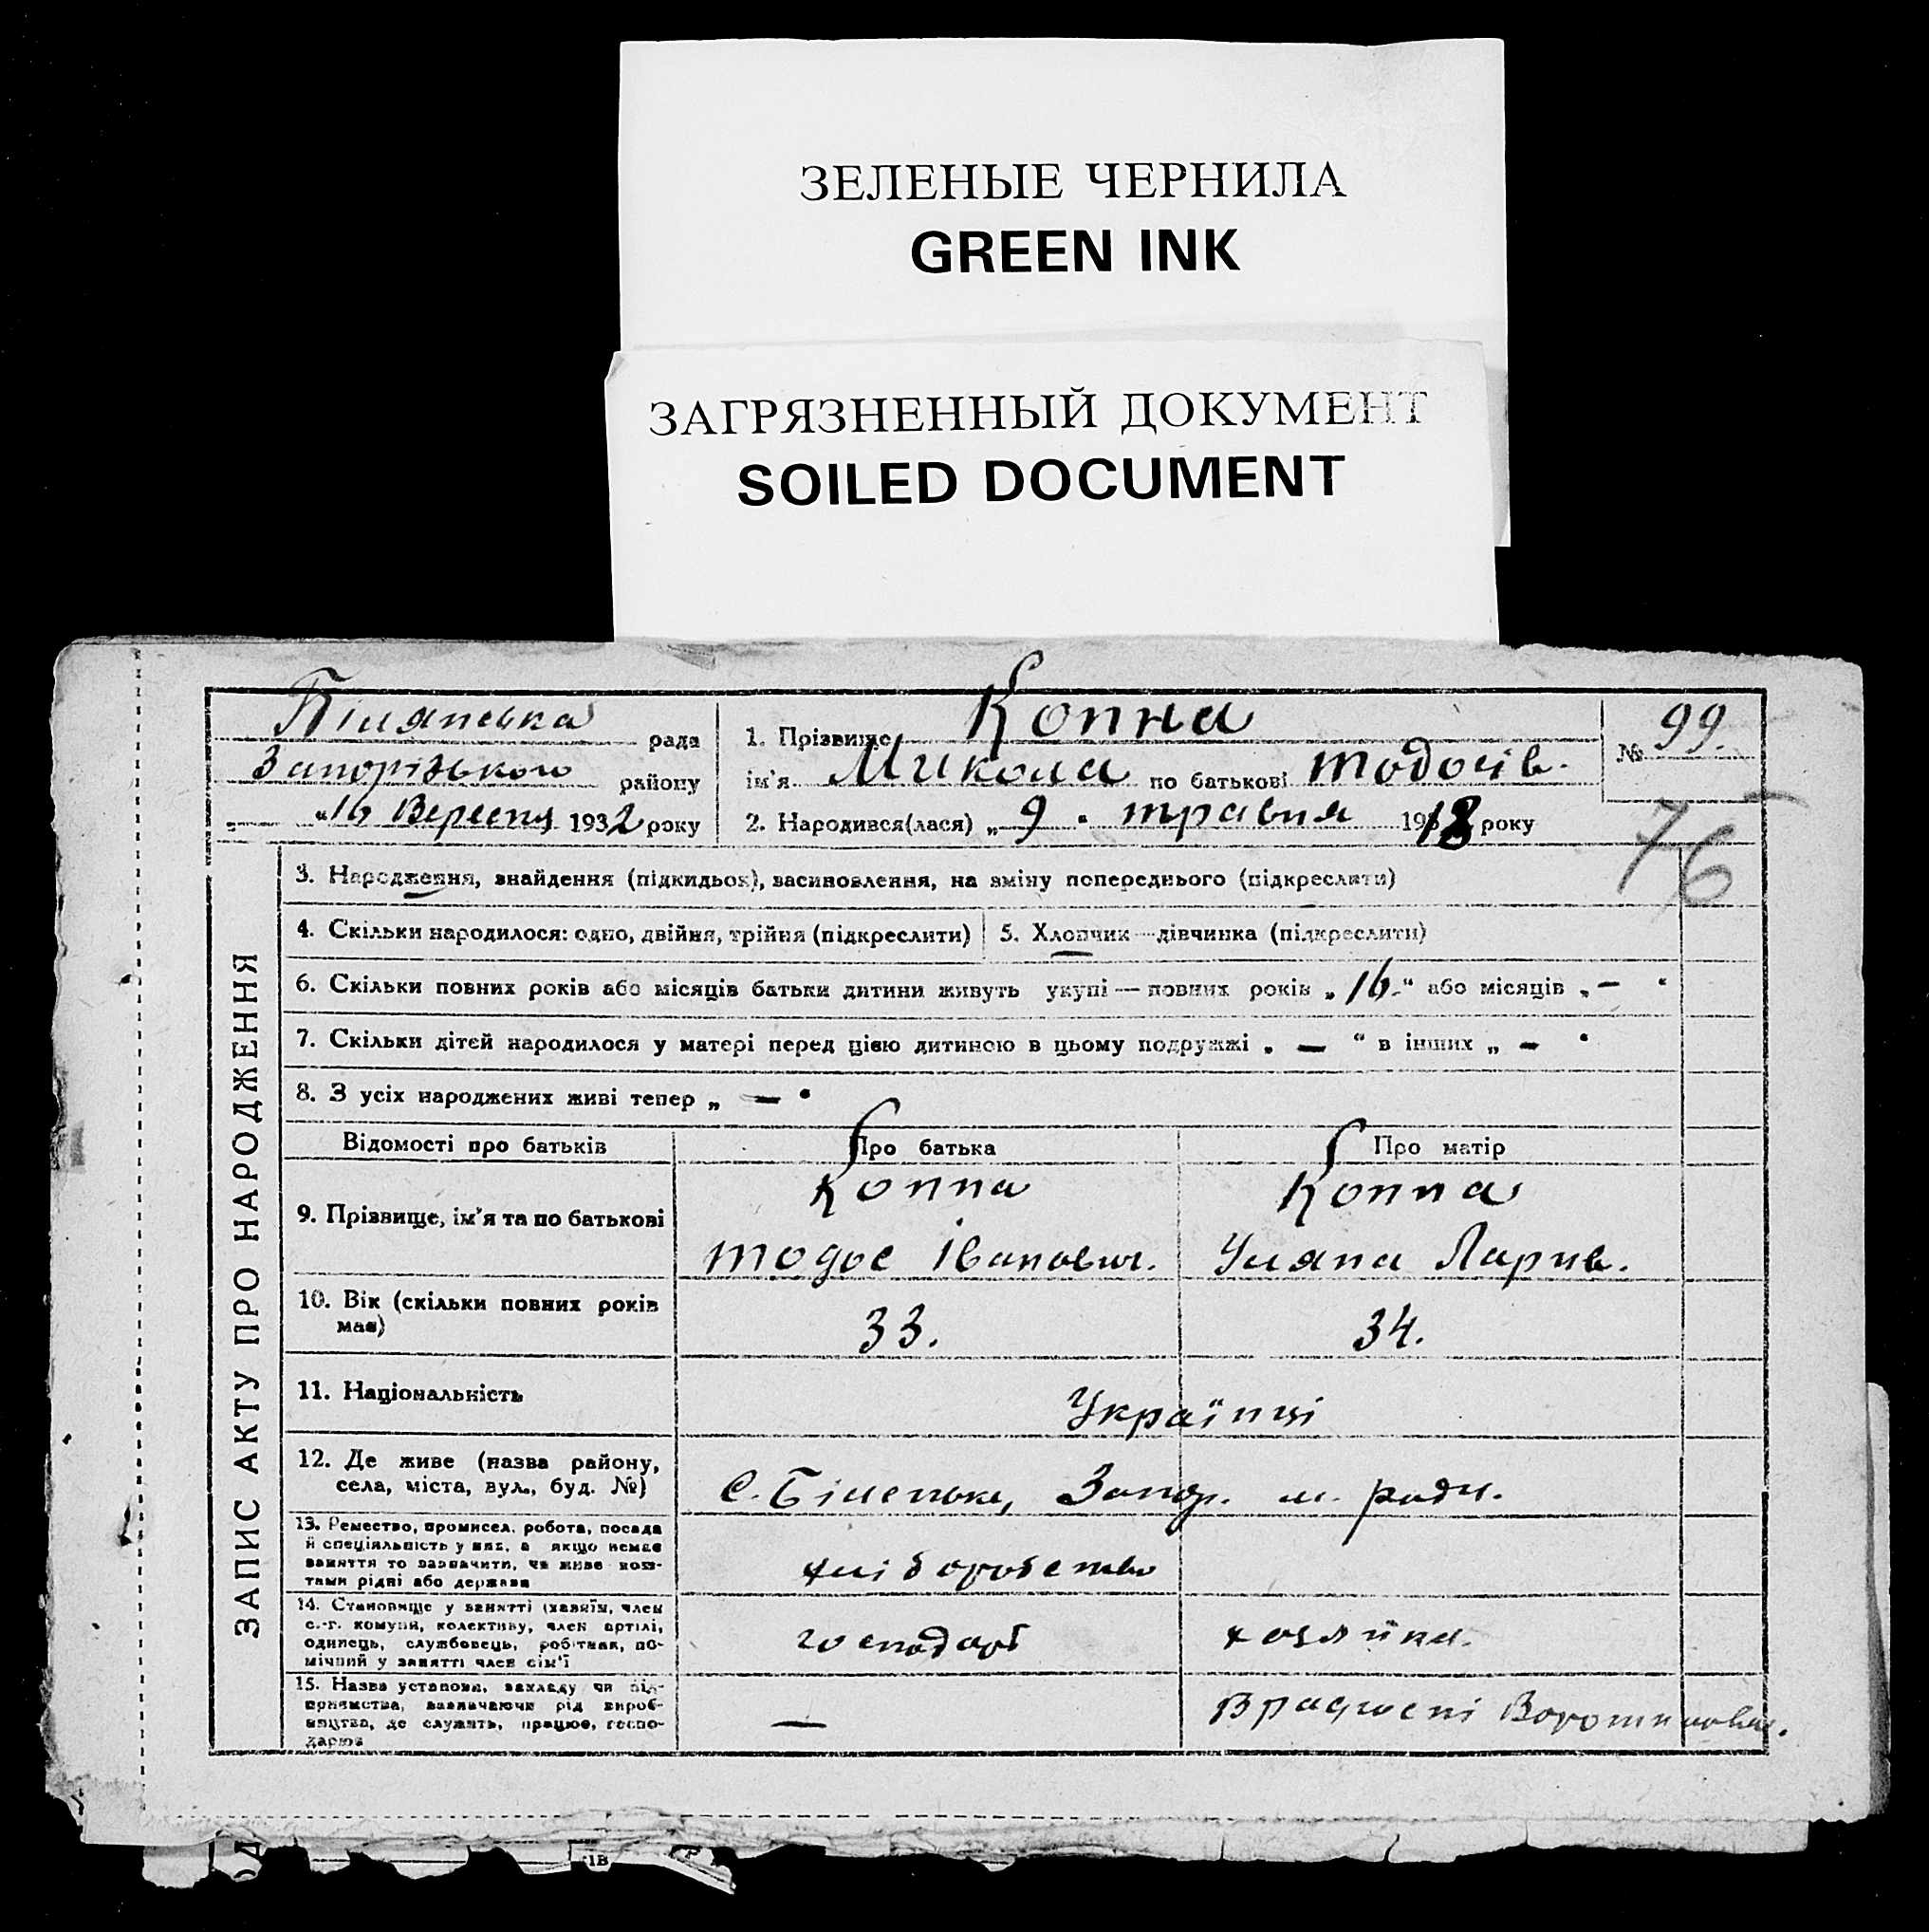 ЗЕЛЕНЫЕ ЧЕРНИЛА
GREEN INK
ЗАГРЯЗНЕННЫЙ ДОКУМЕНТ
SOILED DOCUMENT
рада
Запорізького району
"16 Вересня 1932 року
1. Прізвище Копна
ім'я Микола по батькові Тодосів.
2. Народився(лася) „9" травня 1918 року
№ 99.
76
ЗАПИС АКТУ ПРО НАРОДЖЕННЯ
3. Народження, знайдення (підкидьок), васиновлення, на зміну попереднього (підкреслити)
4. Скільки народилося: одно, двійня, трійня (підкреслити)
5. Хлопчик—дівчинка (підкреслити)
6. Скільки повних років або місяців батьки дитини живуть укупі — повних років „16." або місяців „—"
7. Скільки дітей народилося у матері перед цією дитиною в цьому подружжі „—" в інших „—"
8. З усіх народжених живі тепер „—"
Відомості про батьків Про батька Про матір
9. Прізвище, ім'я та по батькові
Копна
Тодос Іванович.
Копна
Уляна Ларив.
10. Вік (скільки повних років
має)
33. 34.
11. Національність
Українці
12. Де живе (назва району,
села, міста, вул., буд. №)
С. Біленьке, Запор. м. ради.
13. Ремество, промисел, робота, посада
й спеціяльність у них, а якщо немає
заняття то зазначити, чи живе кош-
тами рідні або держави
хліборобство
14. Становище у занятті (хазяїн, член
с.-г. комуни, колективу, член артілі,
одинець, службовець, робітник, по-
мічний у занятті член сім'ї
господарь хозяйка.
15. Назва установи, закладу чи під-
приємства, зазначаючи рід вироб-
ництва, де служить, працює, госпо-
дарює
—